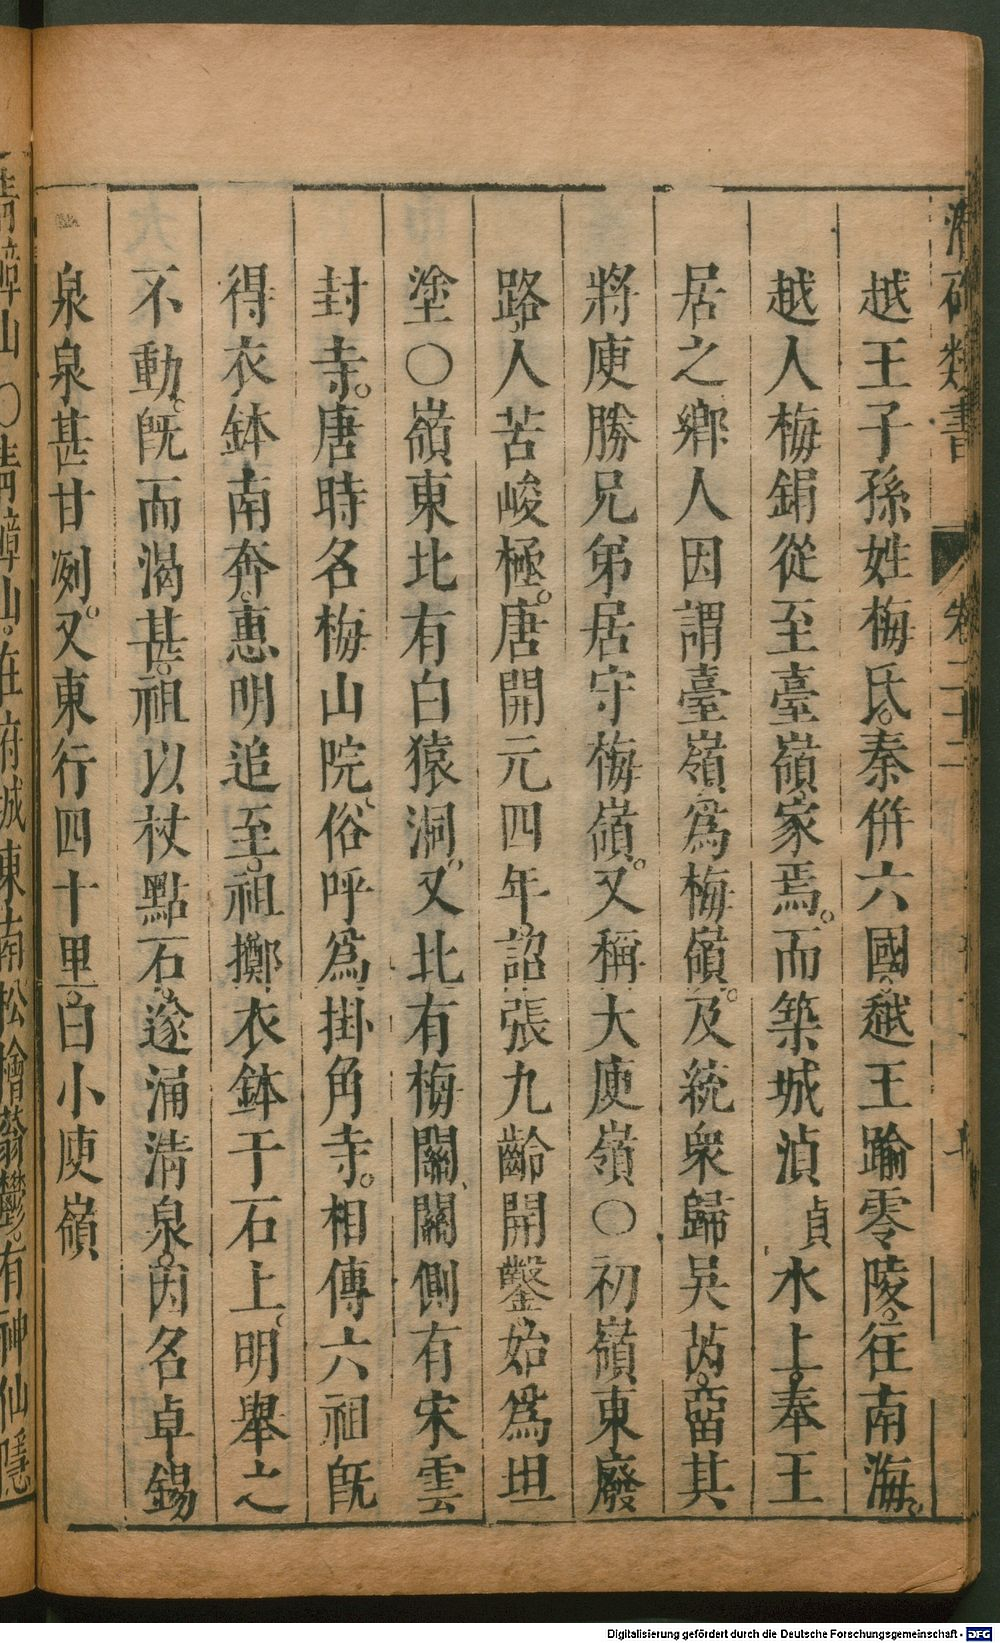 越王子孫姓梅氏。秦併六國。越王踰零陵。往南海。
越人梅鋗從至臺嶺。家焉。而築城湞貞水上。奉王
居之鄉人因謂臺嶺爲梅嶺。及統衆歸吳芮。留其
將庾勝兄弟居守梅嶺。又稱大庾嶺○初嶺東廢
路。人苦峻極。唐開元四年。詔張九齡開鑿。始爲坦
塗○嶺東北有白猿洞。又北有梅關。關側有宋雲
封寺。唐時名梅山院。俗呼爲掛角寺。相傳六祖旣
得衣鉢南奔。惠明追至。祖擲衣鉢于石上。明舉之
不動。旣而渴甚。祖以杖點石。遂涌清泉。因名卓錫
泉泉甚甘冽。又東行四十里。曰小庾嶺
類書 卷二十二
嶂山○嶂山。在府城東南松檜蓊鬱。有神仙隱
Digitalisierung gefördert durch die Deutsche Forschungsgemeinschaft - DFG